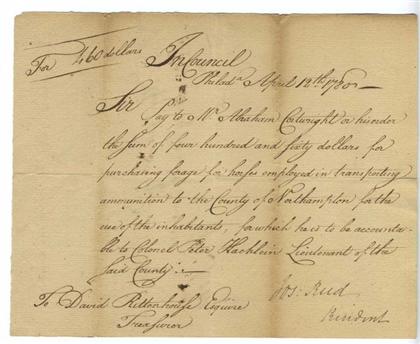 For 460 dollars
In Council
Philada April 12th 1780
Sir
Pay to Mr Abraham Cortwright or his order
the sum of four hundred and sixty dollars for
purchasing forage for horses employed in transporting
ammunition to the County of Northampton for the
use of the inhabitants, for which he is to be accounta-
ble to Colonel Peter Hachlein Lieutenant of the
said County:
Jos: Reed
President
To David Rittenhouse Esquire
Treasurer